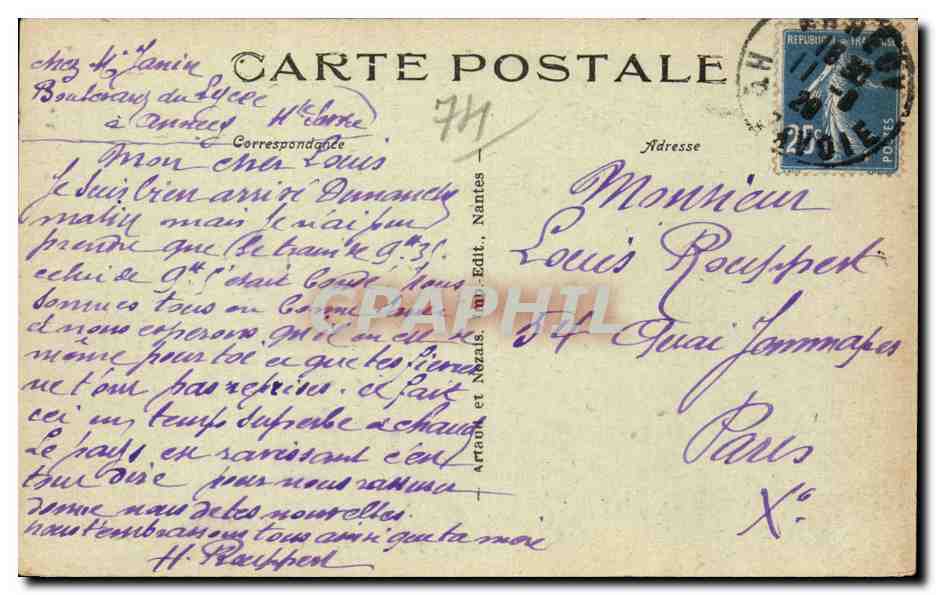 CARTE POSTALE
chez Mr Janin
Boulevard du Lycée
à Annecy Hte Savoie
74
Correspondance
Mon cher Louis
Je suis bien arrivé Dimanche
matin mais je n'ai pu
prendre que le train de 9H 35
celui de 9H 5 était bondé. Nous
sommes tous en bonne santé
et nous espérons qu'il en est de
même pour toi et que tes fièvres
ne t'ont pas reprises. il fait
ici un temps superbe et chaud
Le pays est ravissant c'est
tout dire pour nous rassurer
donne nous de tes nouvelles.
nous t'embrassons tous ainsi que ta mère
H. Rouppert
Artaud et Nozais. Imp.-Edit., Nantes
Adresse
Monsieur
Louis Rouppert
54 Quai Jemmapes
Paris
Xe
REPUBLIQUE FRANCAISE
25c
POSTES
ANNECY
HTE SAVOIE
CPAPHIL